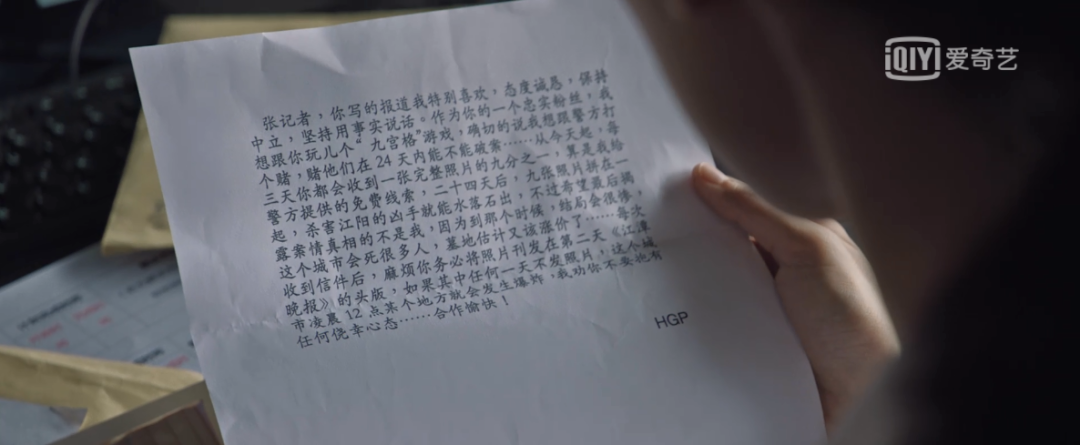 iQIYI 爱奇艺
张记者，你写的报道我特别喜欢，态度诚恳，保持
中立，坚持用事实说话。作为你的一个忠实粉丝，我
想跟你玩儿个“九宫格”游戏，确切的说我想跟警方打
个赌，赌他们在24天内能不能破案……从今天起，每
三天你都会收到一张完整照片的九分之一，算是我给
警方提供的免费线索，二十四天后，九张照片拼在一
起，杀害江阳的凶手就能水落石出，不过希望最后揭
露案情真相的不是我，因为到那个时候，结局会很惨，
这个城市会死很多人，墓地估计又该涨价了……每次
收到信件后，麻烦你务必将照片刊发在第二天《江潭
晚报》的头版，如果其中任何一天不发照片，这个城
市凌晨12点某个地方就会发生爆炸，我劝你不要抱有
任何侥幸心态……合作愉快！
HGP